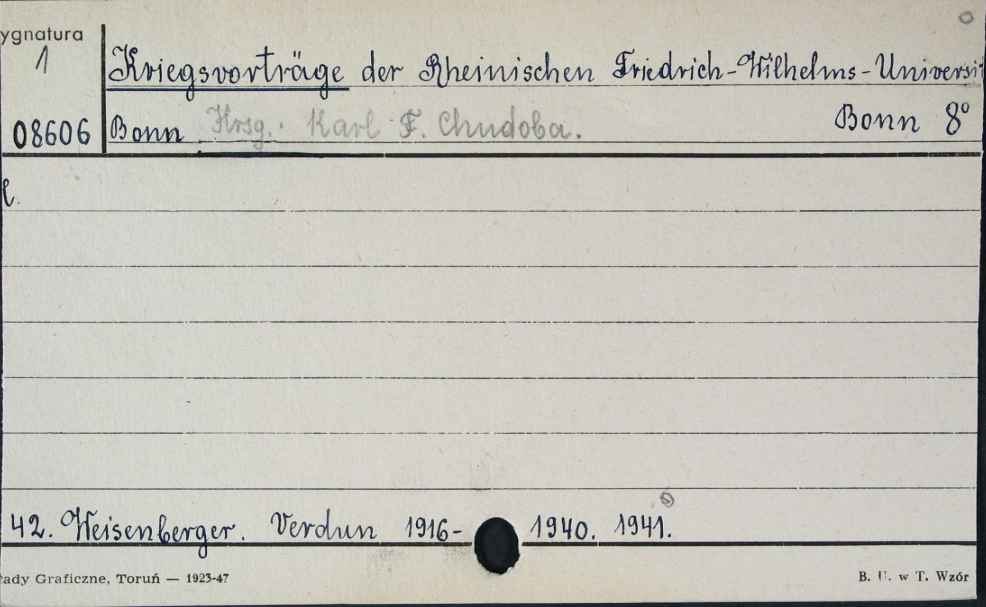 ygnatura
1
Kriegsvorträge der Rheinischen Friedrich-Wilhelms-Universit
08606 Bonn Hrsg. Karl F. Chudoba. Bonn 8°
l.
42. Weisenberger. Verdun 1916- 1940. 1941.
ady Graficzne, Toruń — 1923-47 B. U. w T. Wzór